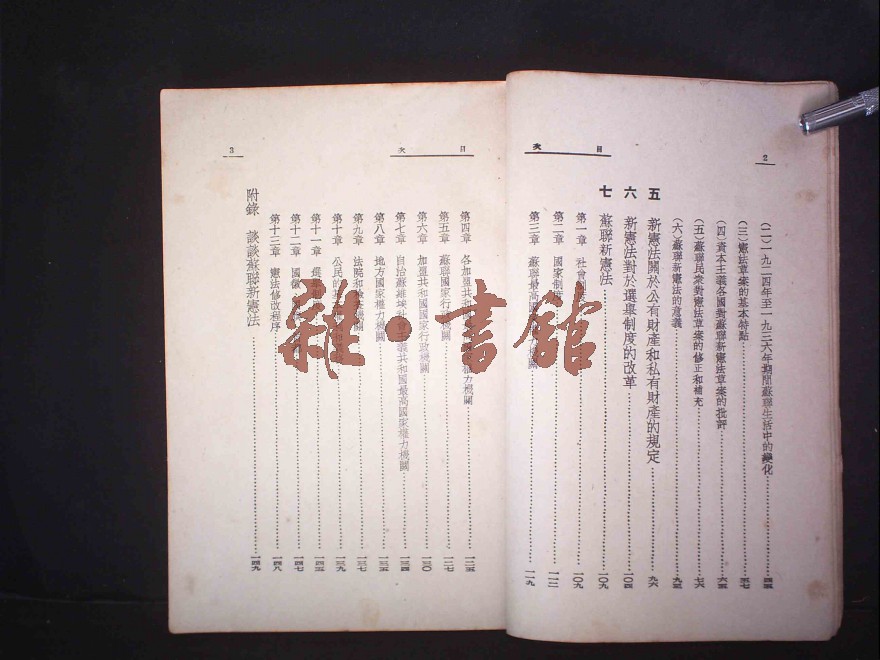 2
目次
(二)一九二四年至一九三六年期間蘇聯生活中的變化
(三)憲法草案的基本特點
(四)資本主義各國對蘇聯新憲法草案的批評
(五)蘇聯民衆對憲法草案的修正和補充
(六)蘇聯新憲法的意義
五 新憲法關於公有財產和私有財產的規定 九六
六 新憲法對於選舉制度的改革 一〇四
七 蘇聯新憲法 一〇九
第一章 社會 一〇九
第二章 國家制 一一二
第三章 蘇聯最高國 關 一一九
目次
3
第四章 各加盟共和國 權力機關 一二五
第五章 蘇聯國家行 機關 一二七
第六章 加盟共和國國家行政機關 一三〇
第七章 自治蘇維埃社會主義共和國最高國家權力機關 一三四
第八章 地方國家權力機關 一三五
第九章 法院和檢 機關 一三七
第十章 公民的基 一三九
第十一章 選舉制 一四五
第十二章 國徽 一四七
第十三章 憲法修改程序 一四八
附錄 談談蘇聯新憲法 一四九
雜·書館